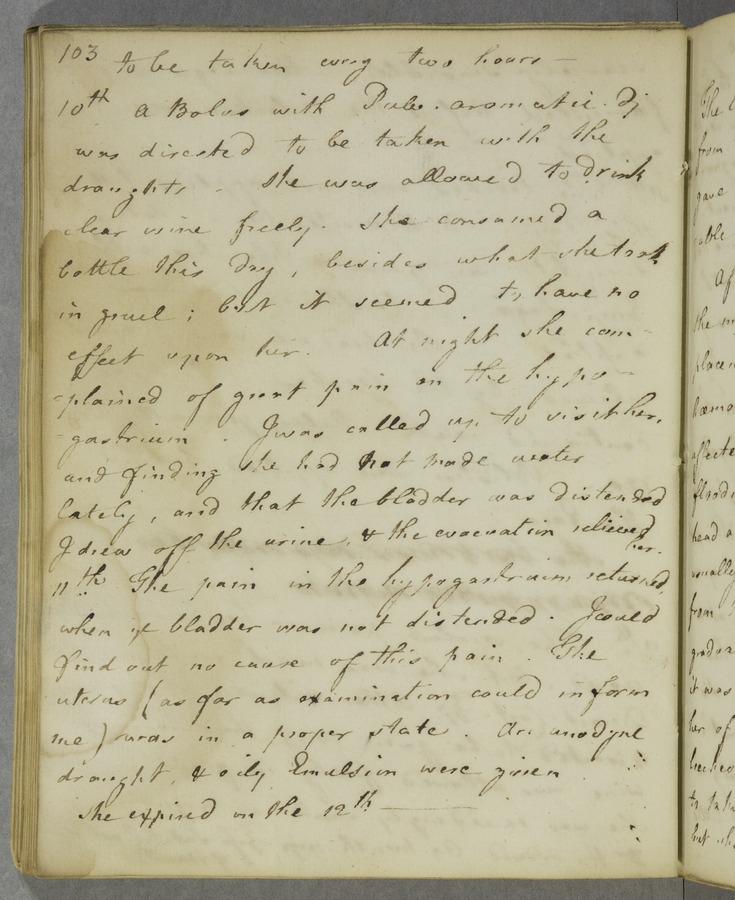 103
to be taken every two hours —
10th A Bolus with Pulv. aromatic. ʒj
was directed to be taken with the
draughts. She was allowed to drink
clear wine freely. She consumed a
bottle this day, besides what she took
in gruel; but it seemed to have no
effect upon her. At night she com-
-plained of great pain on the hypo-
-gastrium. I was called up to visit her,
and finding she had not made water
lately, and that the bladder was distended
I drew off the urine, & the evacuation relieved
her.
11th The pain in the hypogastrium returned,
when ye bladder was not distended. I could
find out no cause of this pain. The
uterus (as far as examination could inform
me) was in a proper state. An anodyne
draught, & oily Emulsion were given
She expired on the 12th —
The
from
gave
able
Af
the
place
haemo
affecte
floodi
head a
usually
from
gradua
it was
her of
to tak
but